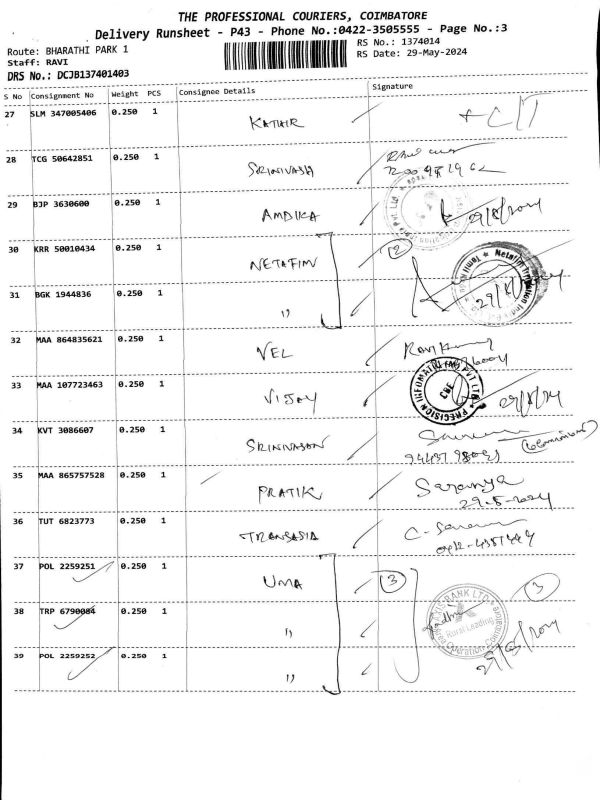 THE PROFESSIONAL COURIERS, COIMBATORE
Delivery Runsheet - P43 - Phone No.:0422-3505555 - Page No.:3
Route: BHARATHI PARK 1
RS No.: 1374014
Staff: RAVI
RS Date: 29-May-2024
DRS No.: DCJB137401403
S No Consignment No Weight PCS Consignee Details Signature
27 SLM 347005406 0.250 1 KATHIR
28 TCG 50642851 0.250 1 SRINIVASH
29 BJP 3630600 0.250 1 AMDIKA
30 KRR 50010434 0.250 1 NETAFIM 2
31 BGK 1944836 0.250 1 "
32 MAA 864835621 0.250 1 VEL
33 MAA 107723463 0.250 1 VIJAY
PRECISION INFOMATIC PVT LTD CBE
34 KVT 3086607 0.250 1 SRINIVASAN
35 MAA 865757528 0.250 1 PRATIK Saranya
29-5-2024
36 TUT 6823773 0.250 1 TRANSASIA
37 POL 2259251 0.250 1 UMA 3 3
38 TRP 6790084 0.250 1 "
AXIS BANK LTD Rural Lending
39 POL 2259252 0.250 1 "